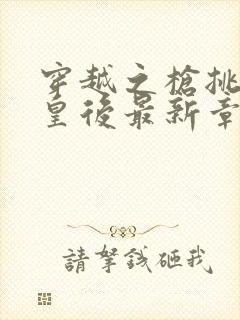 穿越之槍挑
皇後最新章
請拏錢砸我